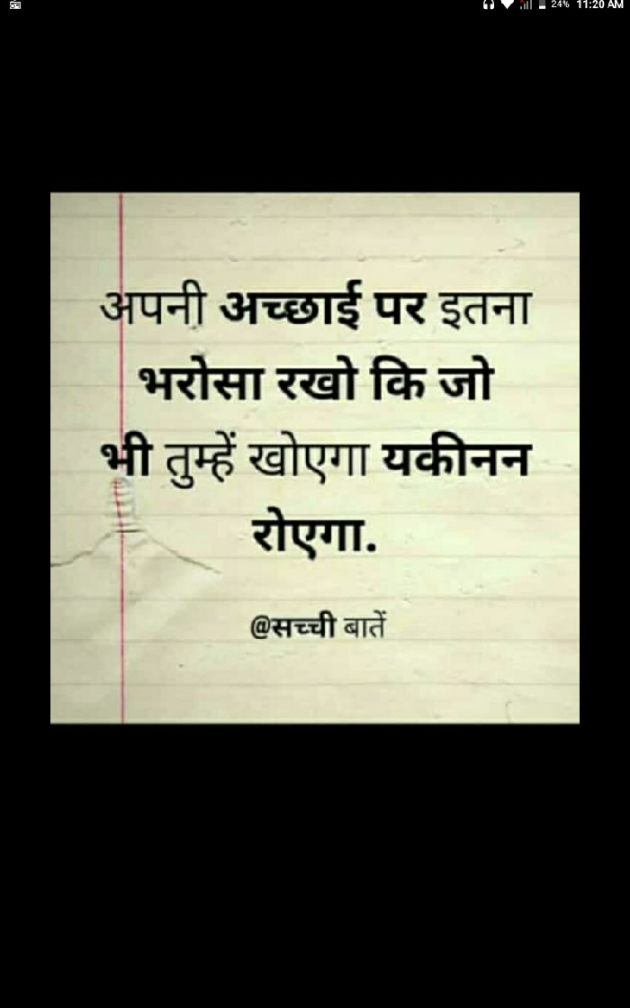 24% 11:20 AM
अपनी अच्छाई पर इतना
भरोसा रखो कि जो
भी तुम्हें खोएगा यकीनन
रोएगा.
@सच्ची बातें